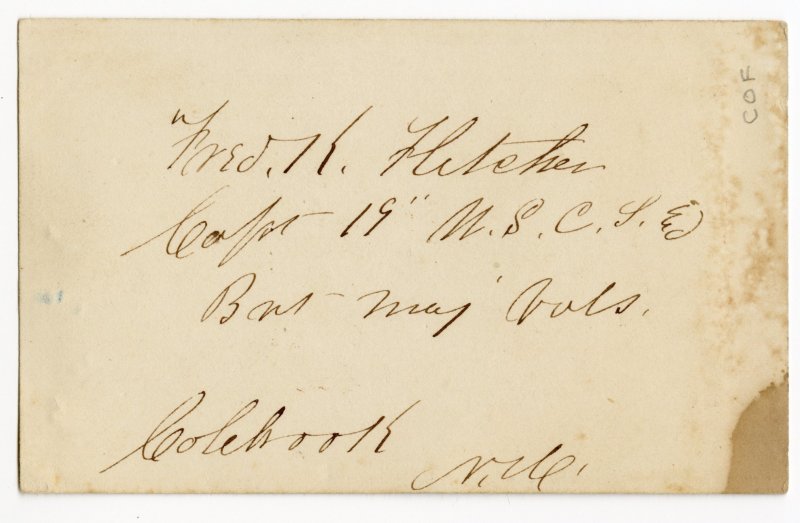 "Fred. K. Fletcher
Capt 19" U.S.C.I. &
Bvt Maj Vols.
Colebrook
N.H.
COF